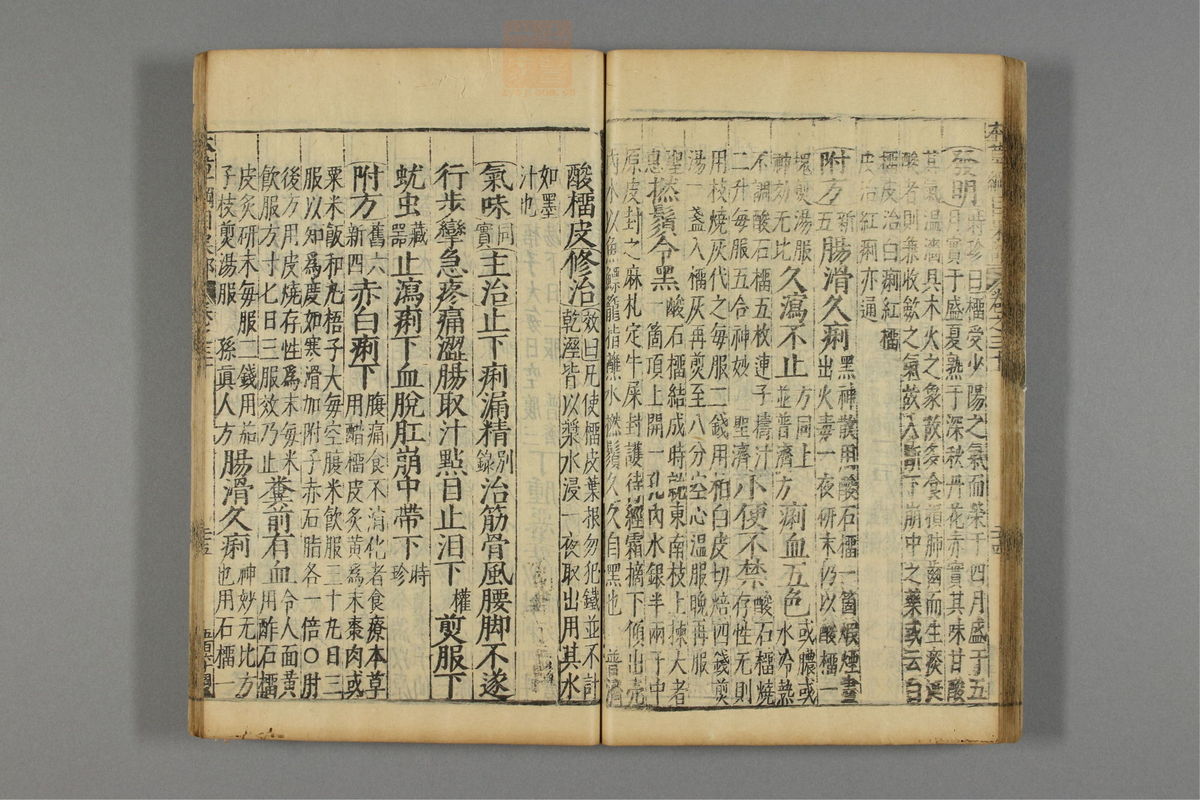 本草綱目果部 卷之三十
發明時珍曰榴受少陽之氣而榮于四月盛于五
月實于盛夏熟于深秋丹花赤實其味甘酸
其氣溫濇具木火之象故多食損肺齒而生痰涎
酸者則兼收斂之氣故入斷下崩中之藥或云白
榴皮治白痢紅榴
皮治紅痢亦通
附方新五腸滑久痢黑神散用酸石榴一箇煅煙盡
出火毒一夜研末仍以酸榴一
塊煎湯服
神効无比久瀉不止方同上並普濟方痢血五色或膿或
水冷熱
不調酸石榴五枚連子擣汁
二升每服五合神妙 聖濟小便不禁酸石榴燒
存性无則
用枝燒灰代之每服二錢用柏白皮切焙四錢煎
湯一盞入榴灰再煎至八分空心溫服晚再服
聖惠撚鬚令黑酸石榴結成時就東南枝上揀大者
一箇頂上開一孔內水銀半兩于中
原皮封之麻札定牛屎封護待經霜摘下傾出壳
內水以魚鰾籠指蘸水撚鬚久久自黑也 普濟
酸榴皮修治斆曰凡使榴皮葉根勿犯鐵並不計
乾溼皆以漿水浸一夜取出用其水
如墨
汁也
氣味同實主治止下痢漏精別錄治筋骨風腰脚不遂
行步攣急疼痛澀腸取汁點目止泪下權煎服下
蚘虫藏器止瀉痢下血脫肛崩中帶下時珍
附方舊六新四赤白痢下腹痛食不消化者食療本草
用醋榴皮炙黃為末棗肉或
粟米飯和丸梧子大每空腹米飲服三十丸日三
服以知為度如寒滑加附子赤石脂各一倍○肘
後方用皮燒存性為末每米
飲服方寸七日三服效乃止糞前有血令人面黃
用酢石榴
皮炙研末每服二錢用茄
子枝煎湯服 孫眞人方腸滑久痢神妙无比方
也用石榴一